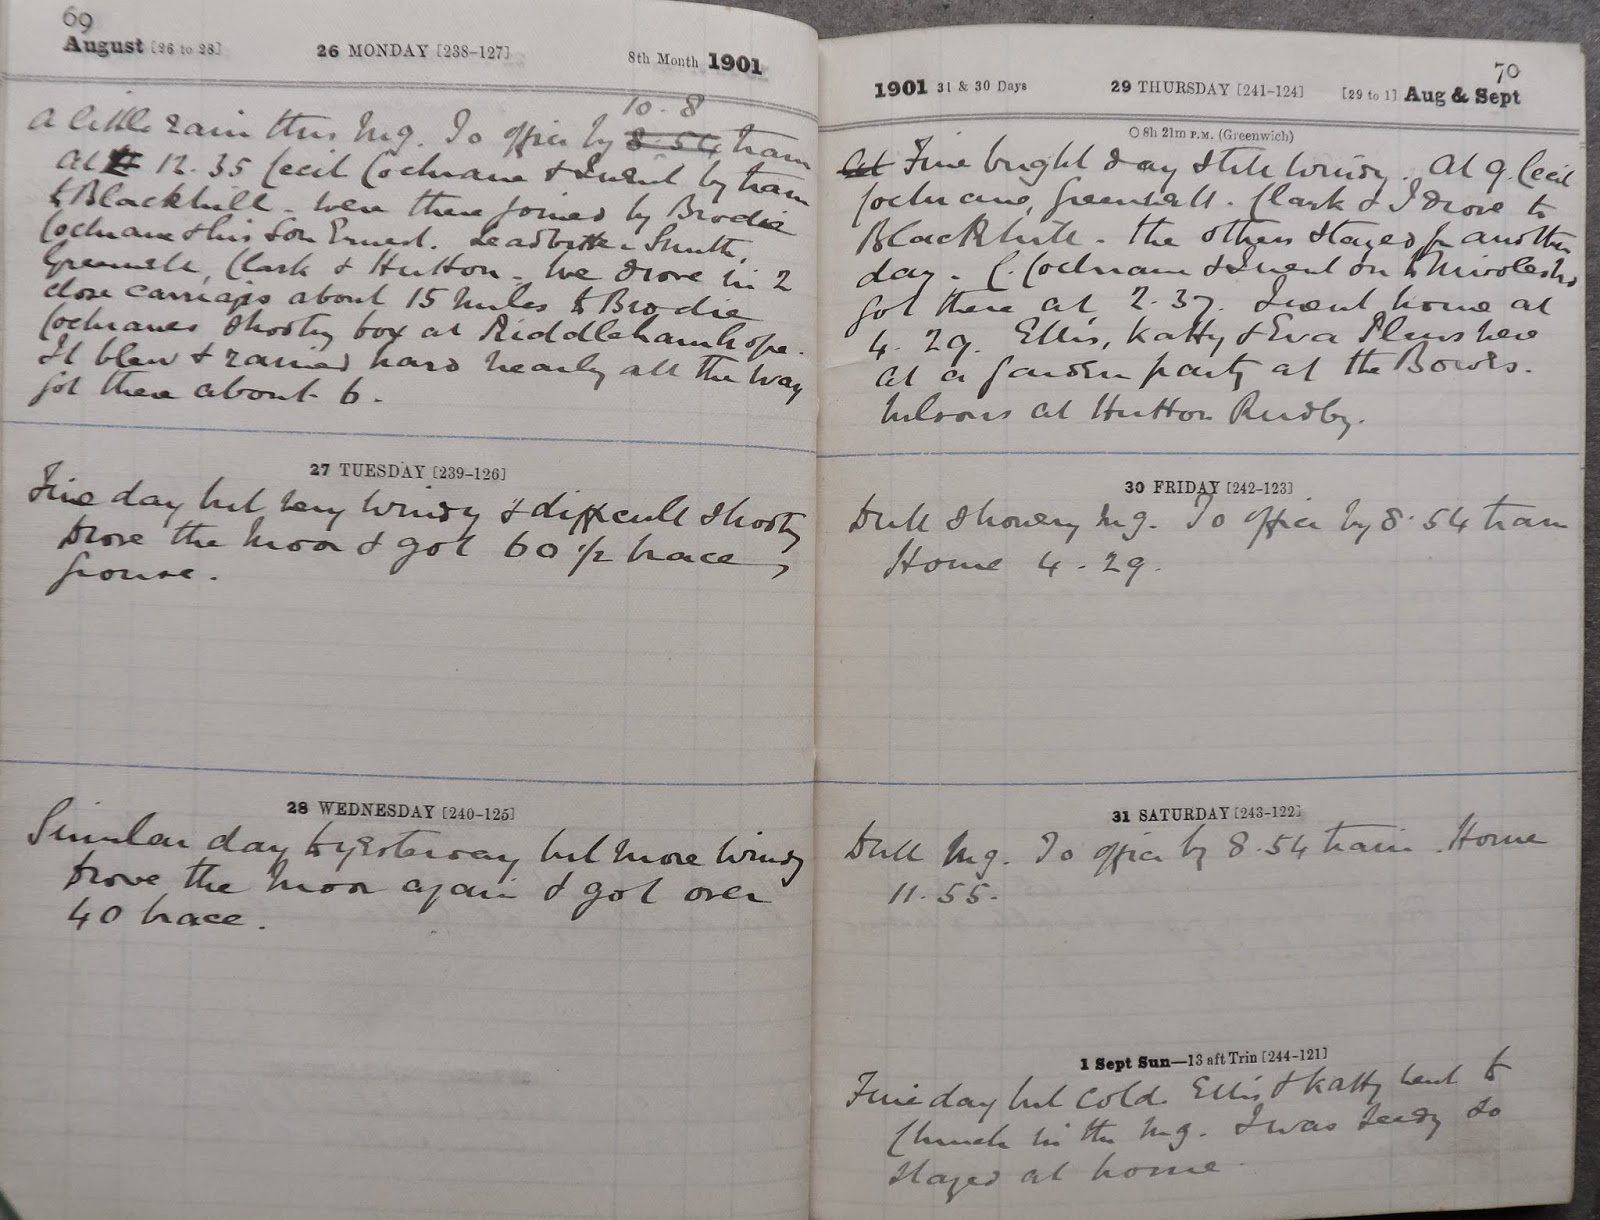 69
August [26 to 28] 26 MONDAY [238-127] 8th Month 1901
10.8
A little rain this Mg. To office by 8.54 train
At 12.35 Cecil Cochrane & I went by train
to Blackhill - were there joined by Brodie
Cochrane & his Son Ernest. Leadbitter Smith,
Greenwell, Clark & Hutton - We drove in 2
close carriages about 15 miles to Brodie
Cochranes shooting box at Riddlehamhope.
It blew & rained hard nearly all the way
got there about 6.
27 TUESDAY [239-126]
Fine day but very windy & difficult shooting
Drove the Moor & got 60 1/2 brace
grouse.
28 WEDNESDAY [240-125]
Similar day to yesterday but more windy
Drove the Moor again & got over
40 brace.
70
1901 31 & 30 Days 29 THURSDAY [241-124] [29 to 1] Aug & Sept
○ 8h 21m P.M. (Greenwich)
At Fine bright day & still windy. At 9. Cecil
Cochrane, Greenwell. Clark & I drove to
Blackhill - the others stayed for another
day - C. Cochrane & I went on to Middlesbro
got there at 2.37. I went home at
4.29. Ellis, Katty & Eva Plews here
at a garden party at the Bowes.
Wilsons at Hutton Rudby.
30 FRIDAY [242-123]
Dull showery Mg. To office by 8.54 train
Home 4.29.
31 SATURDAY [243-122]
Dull Mg. To office by 8.54 train. Home
11.55.
1 Sept Sun—13 aft Trin [244-121]
Fine day but cold. Ellis & Katty went to
Church in the Mg. I was seedy so
stayed at home